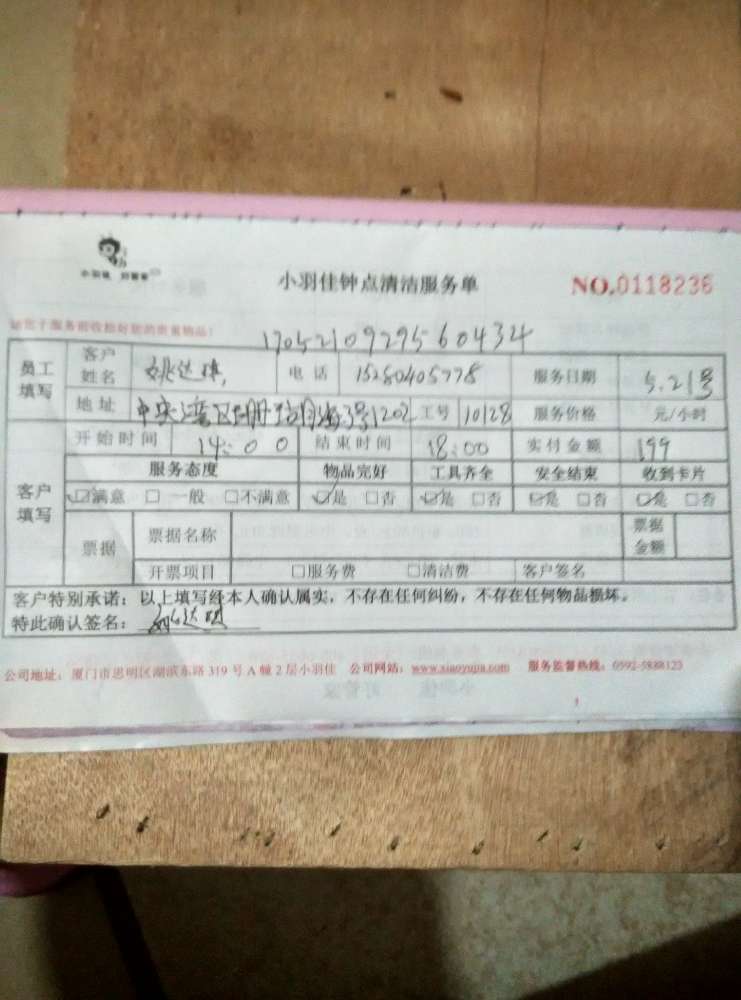 小羽佳钟点清洁服务单 NO.0118236
请您于服务前收拾好您的贵重物品!
170521092956 0434
员工填写 客户姓名 姚达琪 电话 15280405778 服务日期 5.21号
地址 中央湾区 3号1202 工号 10128 服务价格 元/小时
客户填写 开始时间 14:00 结束时间 18:00 实付金额 199
服务态度 物品完好 工具齐全 安全结束 收到卡片
☑满意 □一般 □不满意 ☑是 □否 ☑是 □否 ☑是 □否 ☑是 □否
票据 票据名称 票据金额
开票项目 □服务费 □清洁费 客户签名
客户特别承诺:以上填写经本人确认属实,不存在任何纠纷,不存在任何物品损坏。
特此确认签名: 姚达琪
公司地址:厦门市思明区湖滨东路 319 号 A 幢 2 层小羽佳 公司网站:www.xiaoyujia.com 服务监督热线:0592-5888123